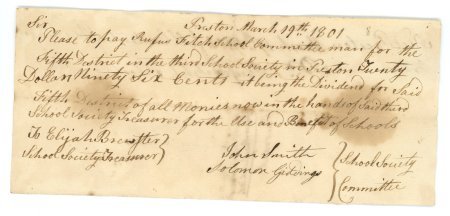 Sir                Preston March 19th 1801
Please to pay Rufus Fitch School Committee man for the
Fifth District in the third School Society in Preston Twenty
Dollars Ninety Six Cents it being the Dividend for Said
Fifth District of all Monies now in the hands of Said third
School Society Treasurer for the Use and Benefit of Schools
To Elijah Brewster } John Smith { School Society
School Society Treasurer } Solomon Giddings { Committee